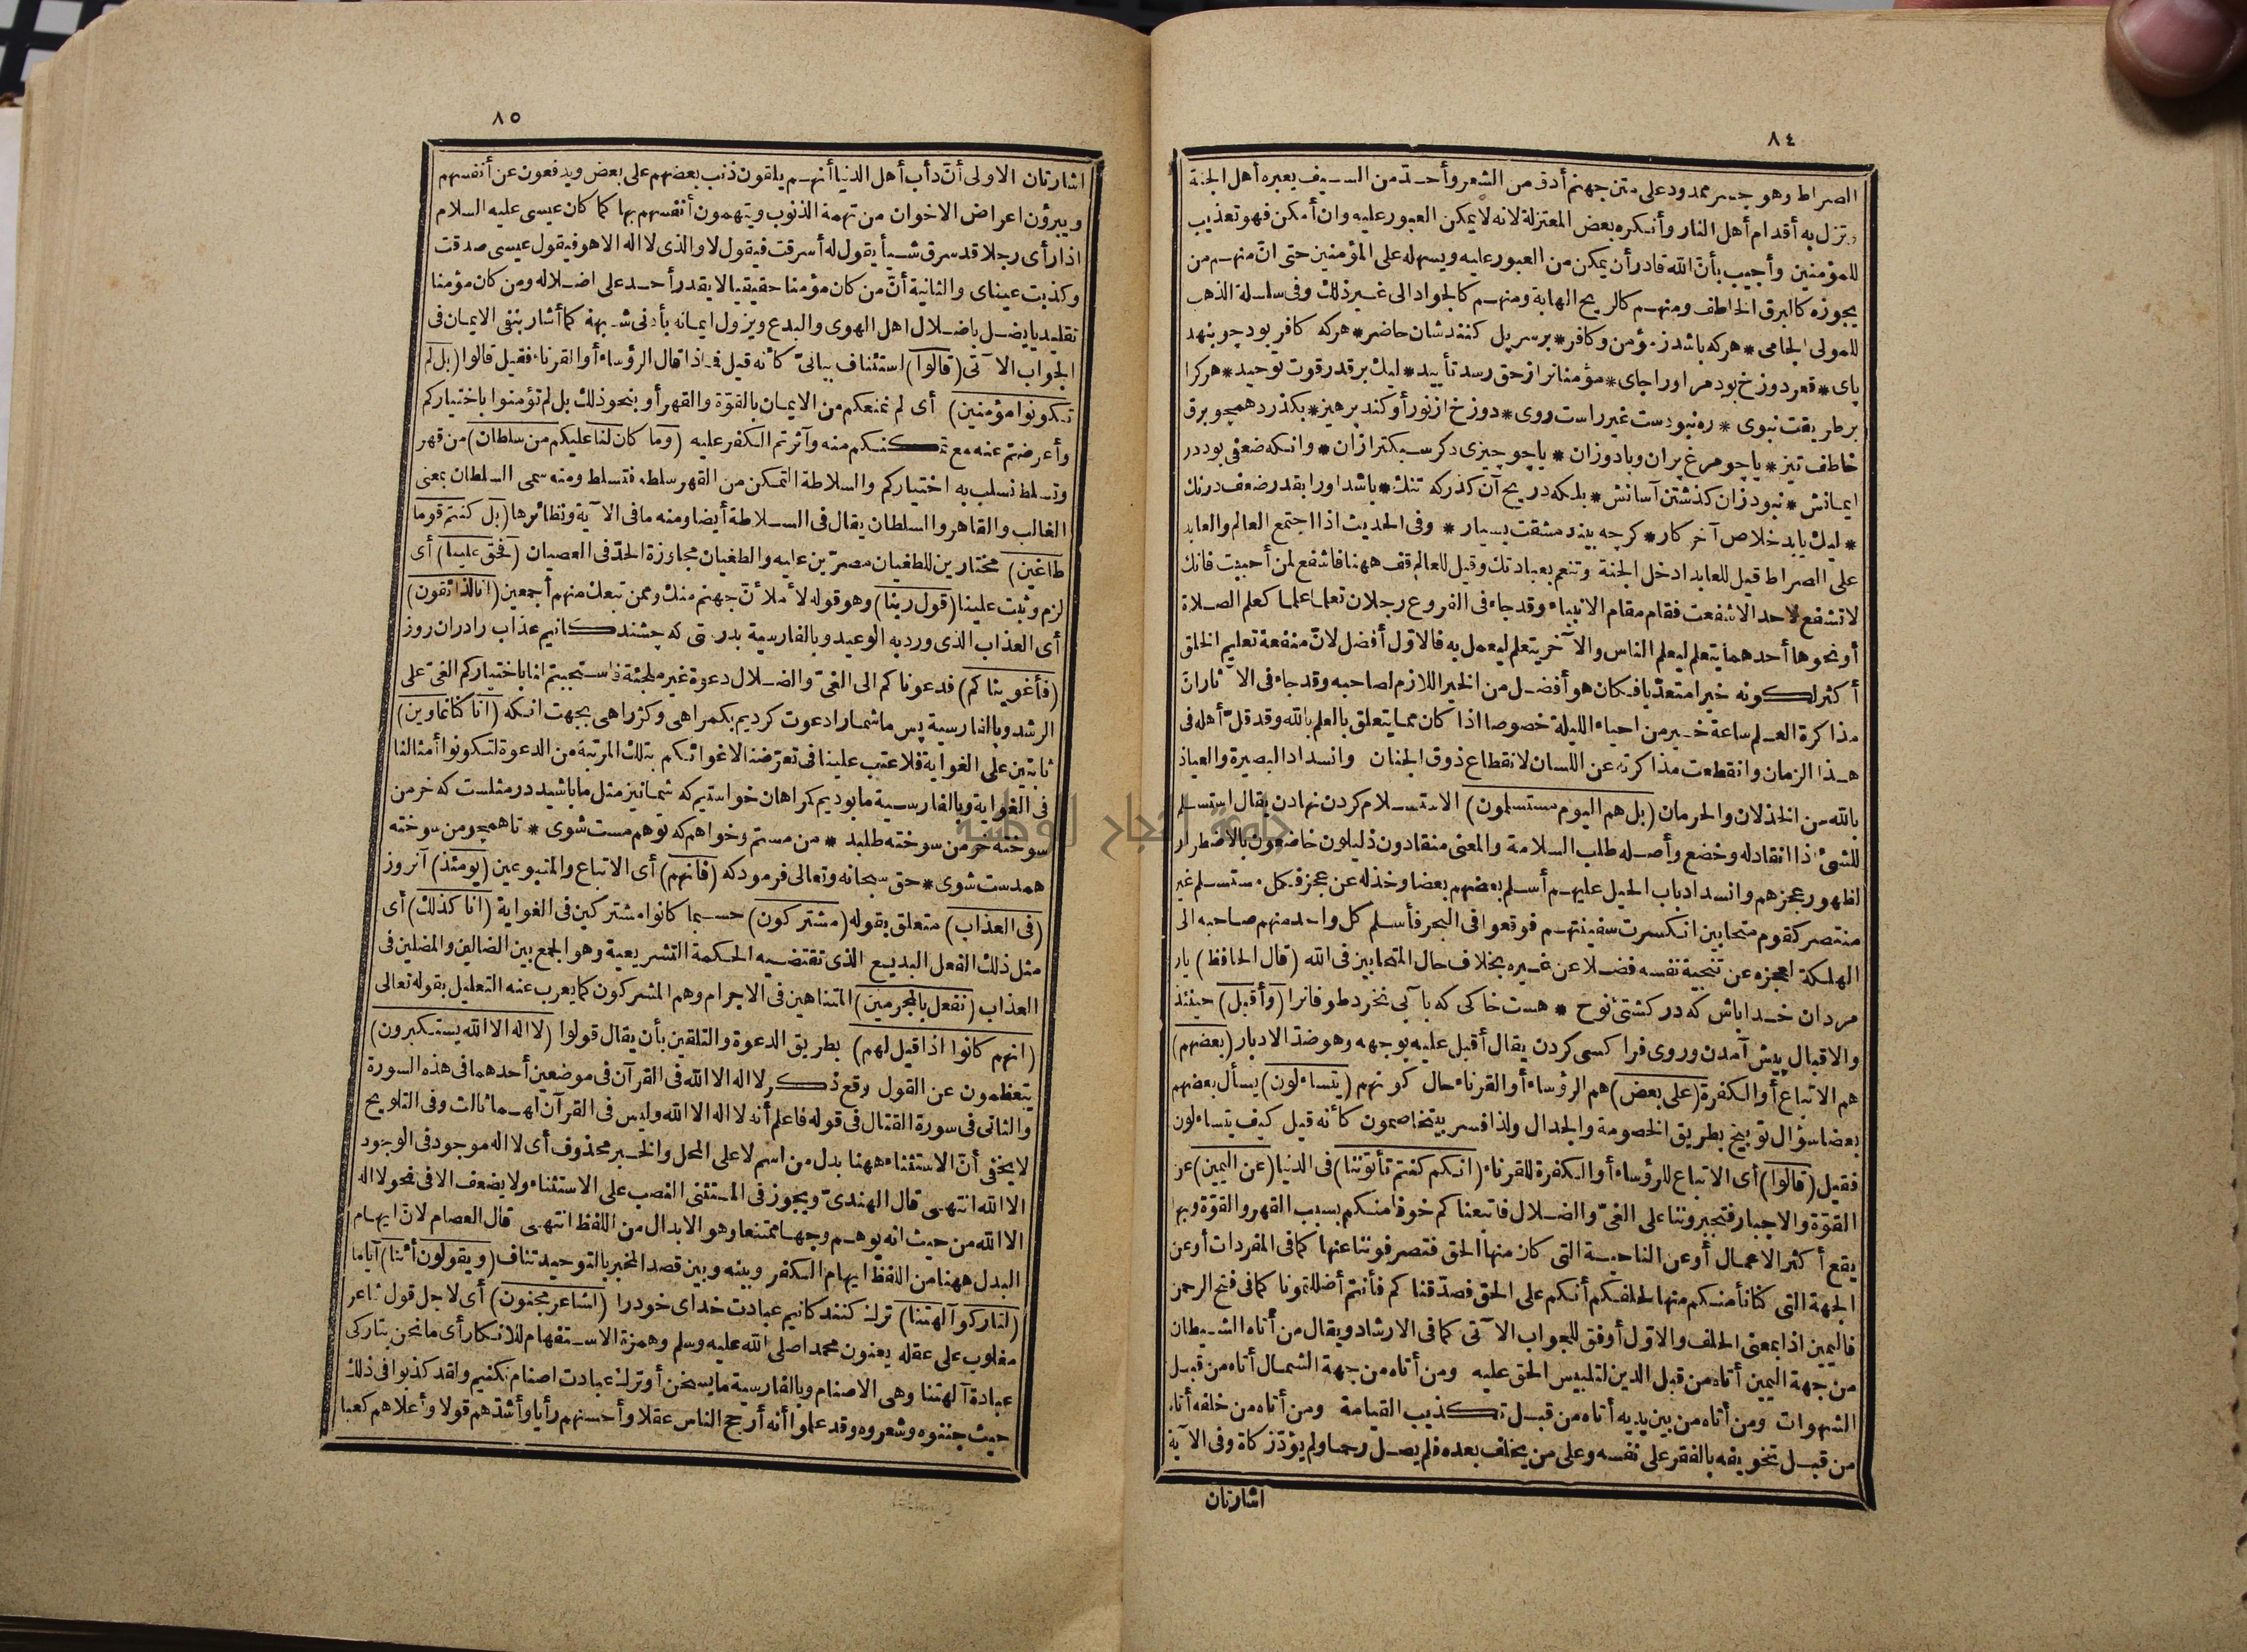 ٨٤
الصراط وهو جسر ممدود على متن جهنم أدق من الشعر وأحدّ من السيف يعبره أهل الجنة
وتزل به أقدام أهل النار وأنكره بعض المعتزلة لانه لا يمكن العبور عليه وان أمكن فهو تعذيب
للمؤمنين وأجيب بأنّ الله قادر أن يمكن من العبور عليه ويسهله على المؤمنين حتى انّ منهم من
يجوزه كالبرق الخاطف ومنهم كالريح الهابة ومنهم كالجواد الى غير ذلك وفى سلسلة الذهب
للمولى الجامى * هركه باشد ز مؤمن وكافر * برسر پل كنند شان حاضر * هركه كافر بود چو بنهد
پاى * قعر دوزخ بود مر او را جاى * مؤمنانرا زحق رسد تأييد * ليك برقدر قوت توحيد * هركرا
برطريقت نبوى * ره نبودست غير راست روى * دوزخ از نور أو كند پرهيز * بكذرد همچو برق
خاطف تيز * يا چو مرغ پران وباد وزان * يا چو چيزى دكر سبكتر ازان * وانكه ضعفى بود در
ايمانش * نبود زان كذشتن آسانش * بلكه در رنج آن كذركه تنك * باشد او را بقدر ضعف درنك
* ليك يابد خلاص آخر كار * كرچه بيند مشقت بسيار * وفى الحديث اذا اجتمع العالم والعابد
على الصراط قيل للعابد ادخل الجنة وتنعم بعبادتك وقيل للعالم قف ههنا فاشفع لمن أحببت فانك
لا تشفع لاحد الا شفعت فقام مقام الانبياء وقد جاء فى الفروع رجلان تعلما علما كعلم الصلاة
أو نحوها أحدهما يتعلم ليعلم الناس والآخر يتعلم ليعمل به فالاوّل أفضل لانّ منفعة تعليم الخلق
أكثر لكونه خيرا متعدّيا فكان هو أفضل من الخير اللازم لصاحبه وقد جاء فى الآثار انّ
مذاكرة العلم ساعة خير من احياء الليلة خصوصا اذا كان مما يتعلق بالعلم بالله وقد قلّ أهله فى
هذا الزمان وانقطعت مذاكرته عن اللسان لانقطاع ذوق الجنان وانسداد البصيرة والعياذ
بالله من الخذلان والحرمان (بل هم اليوم مستسلمون) الاستسلام كردن نهادن يقال استسلم
للشئ اذا انقاد له وخضع وأصله طلب السلامة والمعنى منقادون ذليلون خاضعون بالاضطرار
لظهور عجزهم وانسداد باب الحيل عليهم أسلم بعضهم بعضا وخذله عن عجز فكل مستسلم غير
منتصر كقوم متحابين انكسرت سفينتهم فوقعوا فى البحر فأسلم كل واحد منهم صاحبه الى
الهلكة لعجزه عن تنجية نفسه فضلا عن غيره بخلاف حال المتحابين فى الله (قال الحافظ) يار
مردان خدا باش كه در كشتئ نوح * هست خاكى كه بآبى نخرد طوفانرا (وأقبل) حينئذ
والاقبال پيش آمدن وروى فرا كسى كردن يقال أقبل عليه بوجهه وهو ضدّ الادبار (بعضهم)
هم الاتباع أو الكفرة (على بعض) هم الرؤساء أو القرناء حال كونهم (يتساءلون) يسأل بعضهم
بعضا سؤال توبيخ بطريق الخصومة والجدال ولذا فسر بيتخاصمون كأنه قيل كيف يتساءلون
فقيل (قالوا) أى الاتباع للرؤساء أو الكفرة للقرناء (انكم كنتم تأتوننا) فى الدنيا (عن اليمين) عن
القوّة والاجبار فتجبروننا على الغىّ والضلال فاتبعناكم خوفا منكم بسبب القهر والقوّة وبها
يقع أكثر الاعمال أو عن الناحية التى كان منها الحق فتصرفوننا عنها كما فى المفردات أو عن
الجهة التى كنا نأمنكم منها لحلفكم أنكم على الحق فصدّقناكم فأنتم أضللتمونا كما فى فتح الرحمن
فاليمين اذا بمعنى الحلف والاوّل أوفق للجواب الآتى كما فى الارشاد ويقال من أتاه الشيطان
من جهة اليمين أتاه من قبل الدين لتلبيس الحق عليه ومن أتاه من جهة الشمال أتاه من قبل
الشهوات ومن أتاه من بين يديه أتاه من قبل تكذيب القيامة ومن أتاه من خلفه أتاه
من قبل تخويفه بالفقر على نفسه وعلى من يخلف بعده فلم يصل رحما ولم يؤدّ زكاة وفى الآية
اشارتان
٨٥
اشارتان الاولى أنّ دأب أهل الدنيا أنهم يلقون ذنب بعضهم على بعض ويدفعون عن أنفسهم
ويبرؤن اعراض الاخوان من تهمة الذنوب ويتهمون أنفسهم بها كما كان عيسى عليه السلام
اذا رأى رجلا قد سرق شيأ يقول له أسرقت فيقول لا والذى لا اله الا هو فيقول عيسى صدقت
وكذبت عيناى والثانية أنّ من كان مؤمنا حقيقيا لا يقدر أحد على اضلاله ومن كان مؤمنا
تقليديا يضل باضلال اهل الهوى والبدع ويزول ايمانه بأدنى شبهة كما أشار بنفى الايمان فى
الجواب الآتى (قالوا) استئناف بيانىّ كأنه قيل فماذا قال الرؤساء أو القرناء فقيل قالوا (بل لم
تكونوا مؤمنين) أى لم نمنعكم من الايمان بالقوّة والقهر أو بنحو ذلك بل لم تؤمنوا باختياركم
وأعرضتم عنه مع تمكنكم منه وآثرتم الكفر عليه (وما كان لنا عليكم من سلطان) من قهر
وتسلط نسلب به اختياركم والسلاطة التمكن من القهر سلطه فتسلط ومنه سمى السلطان بمعنى
الغالب والقاهر والسلطان يقال فى السلاطة أيضا ومنه ما فى الآية ونظائرها (بل كنتم قوما
طاغين) مختارين للطغيان مصرّين عليه والطغيان مجاوزة الحدّ فى العصيان (فحق علينا) أى
لزم وثبت علينا (قول ربنا) وهو قوله لأملأنّ جهنم منك وممن تبعك منهم أجمعين (انا لذائقون)
أى العذاب الذى ورد به الوعيد وبالفارسية بدرستى كه چشندكانيم عذاب را دران روز
(فأغويناكم) فدعوناكم الى الغىّ والضلال دعوة غير ملجئة فاستجبتم لنا باختياركم الغىّ على
الرشد وبالفارسية پس ما شمارا دعوت كرديم بكمراهى وكژراهى بجهت انكه (انا كنا غاوين)
ثابتين على الغواية فلا عتب علينا فى تعرّضنا لاغوائكم بتلك المرتبة من الدعوة لتكونوا أمثالنا
فى الغواية وبالفارسية ما بوديم كمراهان خواستيم كه شما نيز مثل ما باشيد در مثلست كه خرمن
سوخته خرمن سوخته طلبد * من مستم وخواهم كه توهم مست شوى * تا همچو من سوخته
همدست شوى * حق سبحانه وتعالى فرمودكه (فانهم) أى الاتباع والمتبوعين (يومئذ) آنروز
(فى العذاب) متعلق بقوله (مشتركون) حسبما كانوا مشتركين فى الغواية (انا كذلك) أى
مثل ذلك الفعل البديع الذى تقتضيه الحكمة التشريعية وهو الجمع بين الضالين والمضلين فى
العذاب (نفعل بالمجرمين) المتناهين فى الاجرام وهم المشركون كما يعرب عنه التعليل بقوله تعالى
(انهم كانوا اذا قيل لهم) بطريق الدعوة والتلقين بأن يقال قولوا (لا اله الا الله يستكبرون)
يتعظمون عن القول وقع ذكر لا اله الا الله فى القرآن فى موضعين أحدهما فى هذه السورة
والثانى فى سورة القتال فى قوله فاعلم أنه لا اله الا الله وليس فى القرآن لهما ثالث وفى التلويح
لا يخفى أنّ الاستثناء ههنا بدل من اسم لا على المحل والخبر محذوف أى لا اله موجود فى الوجود
الا الله انتهى قال الهندىّ ويجوز فى المستثنى النصب على الاستثناء ولا يضعف الا فى نحو لا اله
الا الله من حيث انه يوهم وجها ممتنعا وهو الابدال من اللفظ انتهى قال العصام لانّ ايهام
البدل ههنا من اللفظ ايهام الكفر وبينه وبين قصد المخبر بالتوحيد تناف (ويقولون أئنا) آيا ما
(لتاركوا آلهتنا) ترك كنندكانيم عبادت خداى خودرا (لشاعر مجنون) أى لاجل قول شاعر
مغلوب على عقله يعنون محمدا صلى الله عليه وسلم وهمزة الاستفهام للانكار أى ما نحن بتاركى
عبادة آلهتنا وهى الاصنام وبالفارسية ما بسخن أو ترك عبادت اصنام نكنيم ولقد كذبوا فى ذلك
حيث جننوه وشعروه وقد علموا أنه أرجح الناس عقلا وأحسنهم رأيا وأشدّهم قولا وأعلاهم كعبا
جامعة النجاح الوطنية